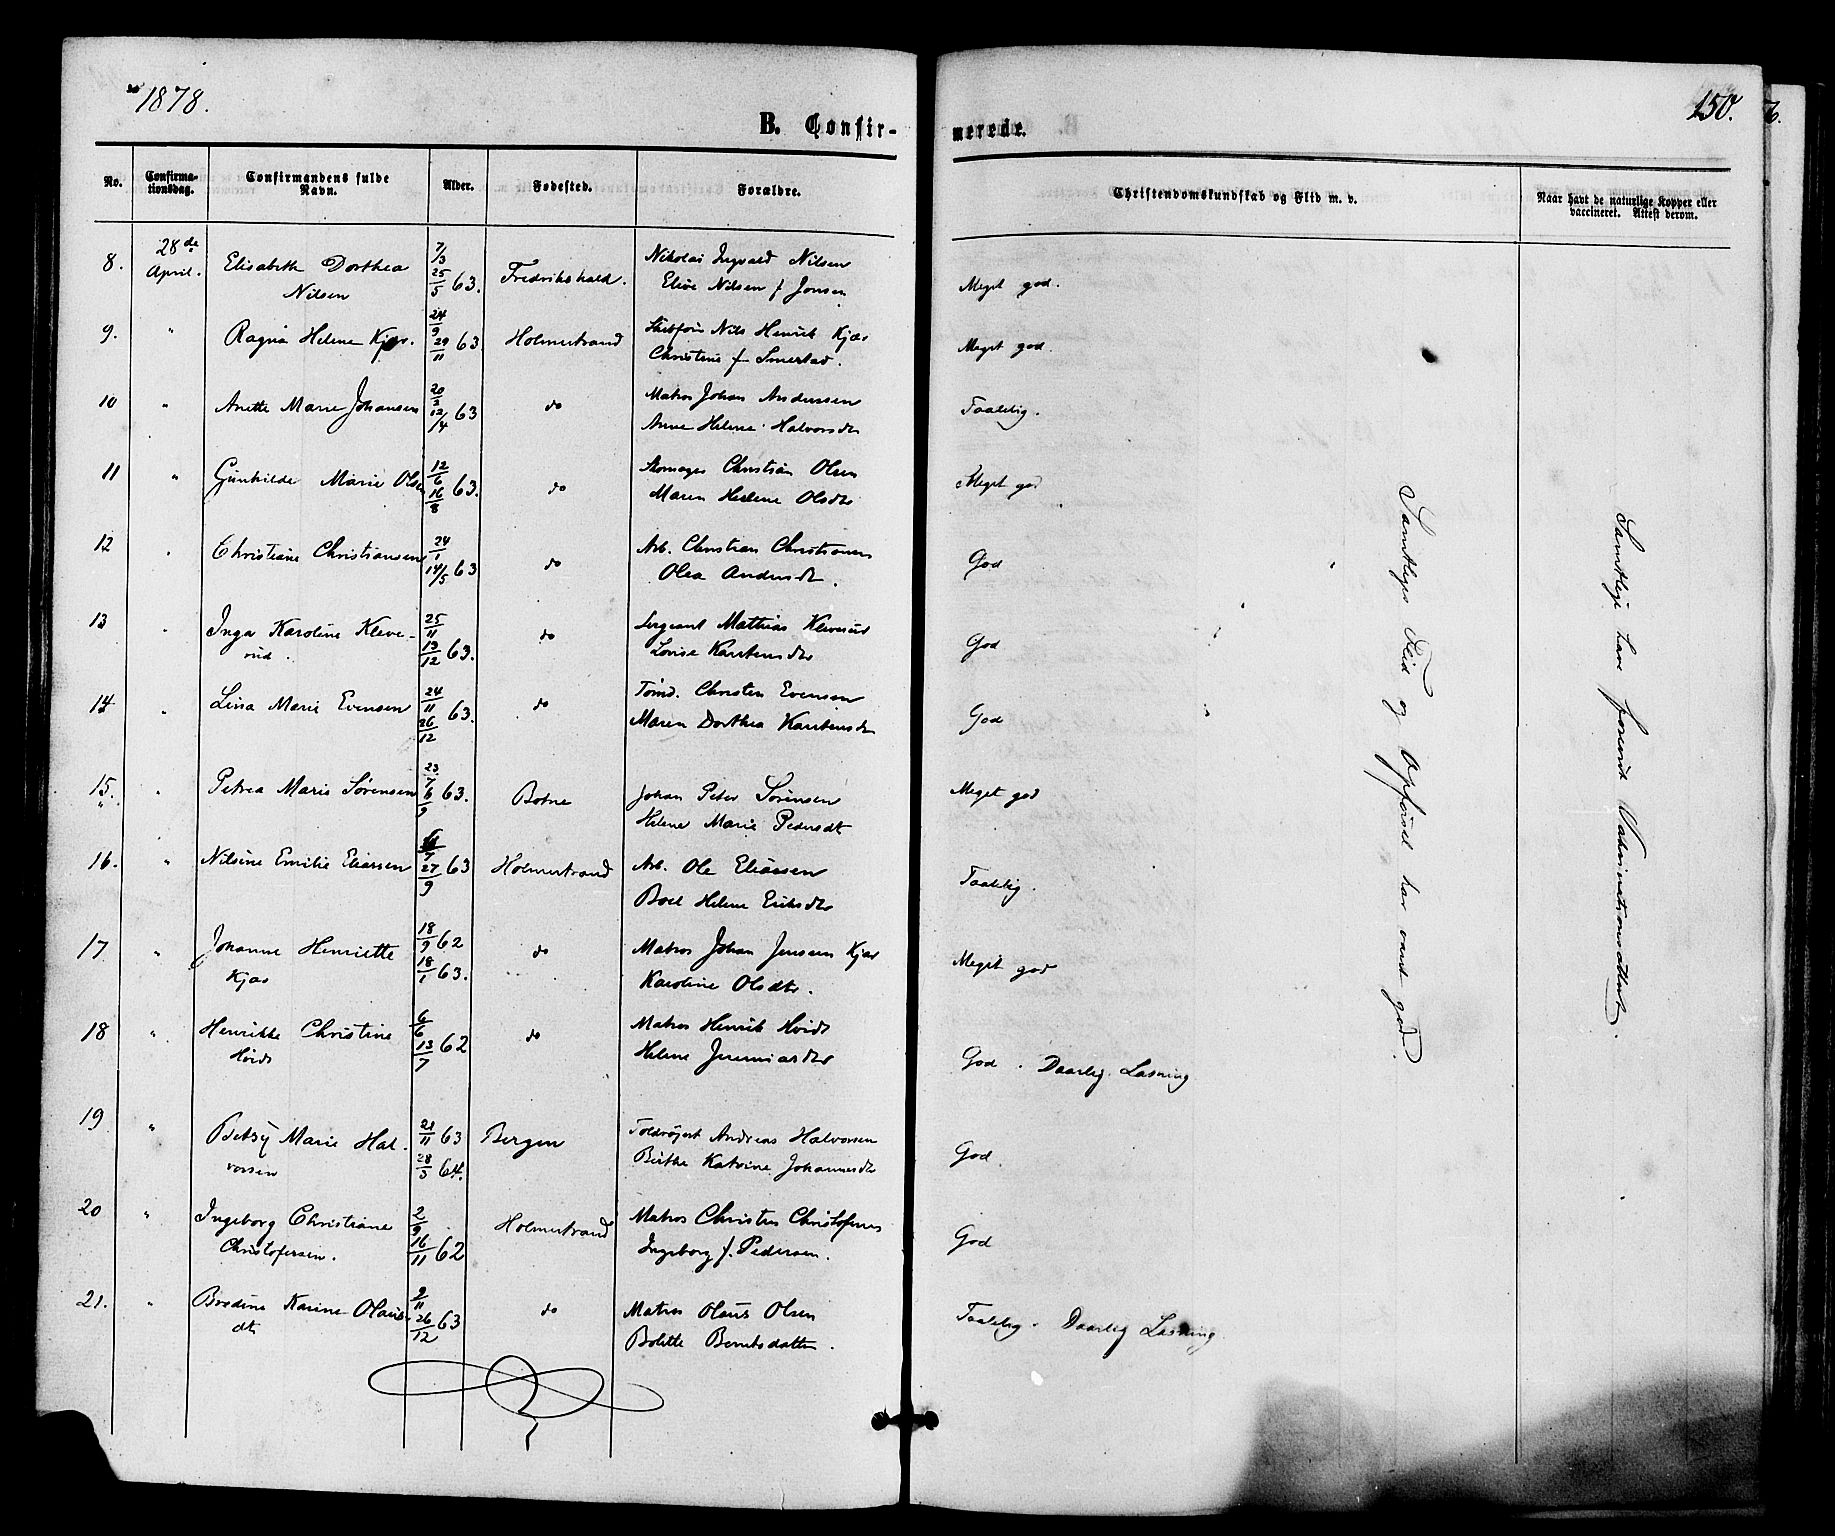 1878.
150.
6.
B. Confir-
merede.
No.
Confirma-
tionsdag.
Confirmandens fulde
Navn.
Alder.
Fødested.
Forældre.
Christendomskundskab og Flid m. v.
Naar havt de naturlige Kopper eller
vaccineret. Attest derom.
8. 28de April. Elisabeth Dorthea 7/3 Fredrikshald. Nikolai Ingvald Nilsen Meget god.
Nilsen 25/5 63. Elise Nilsen f Jonsen
9. " Ragna Helene Kjær. 24/9 29/11 63 Holmestrand Skibsfør Nils Henrik Kjær Meget god.
Christine f Smerlad.
10 " Anette Marie Johansen 20/2 12/4 63 do Matros Johan Anderssen Taalelig.
Anne Helene Halvorsdtr
11 " Gunhilde Marie Olsen 12/6 16/8 63. do Skomager Christian Olsen Meget god
Maren Helene Olsdtr
12 " Christiane Christiansen 24/1 14/5 63 do Arb. Christian Christiansen God
Olea Andersdtr.
13 " Inga Karoline Kleve- 25/11 do Sergeant Mathias Kleverud God
rud. 13/12 63. Lovise Karstensdtr
14 " Lina Marie Evensen 24/11 26/12 63. do Tømd. Christen Evensen God
Maren Dorthea Karstensdtr
15. " Petrea Marie Sørensen 23/7 6/9 63. Botne Johan Peter Sørensen Meget god
" Helene Marie Pedersdtr
16. " Nilsine Emilie Eliassen /7 27/9 63 Holmestrand Arb. Ole Eliassen Taalelig.
Boel Helene Eriksdtr
17 " Johanne Henriette 18/9 62 do Matros Johan Jensen Kjær Meget god
Kjær 18/1 63. Karoline Olsdtr.
18 " Henrikke Christine 6/6 do Matros Henrik Hvidt God. Daarlig Læsning
Hvidt 13/7 62 Helene Jeremiasdtr
19 " Betsy Marie Hal- 21/11 63 Bergen Toldrojert Andreas Halvorsen God.
vorsen 28/3 64. Birthe Katrine Johannesdtr
20 " Ingeborg Christiane 2/9 Holmestrand Matros Christen Christofersen God
Christofersen. 16/11 62 Ingeborg f. Pedersen.
21. " Bredine Karine Olaus- 9/11 do Matros Olaus Olsen Taalelig. Daarlig Læsning
dtr 26/12 63 Bolette Berntsdatter.
Samtliges Flid og Opførsel har været god.
Samtlige have foreviist Vakcinationsattest.